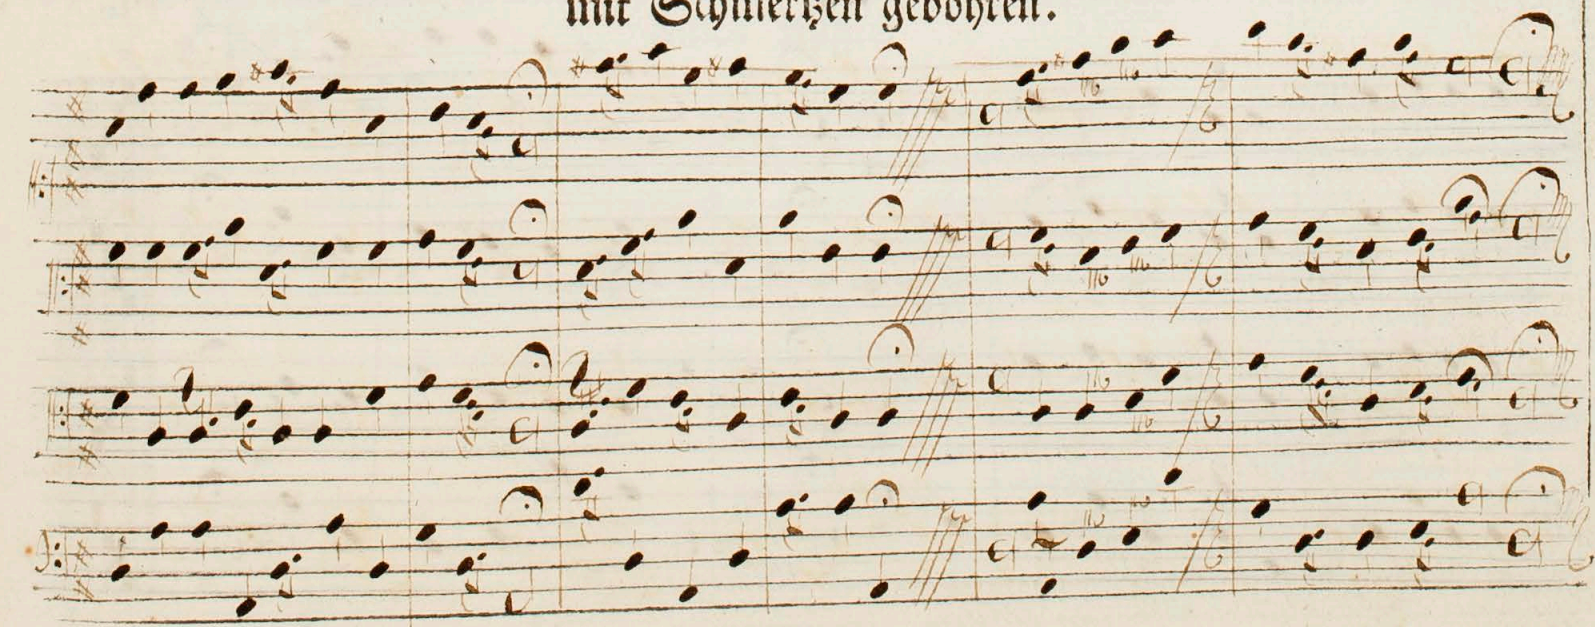 mit Schmertzen gebohren.